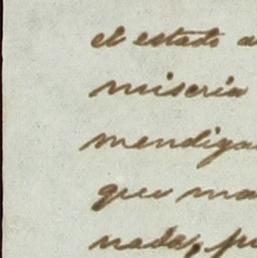 el estado a
miseria
mendiga
que ma
nada, pu